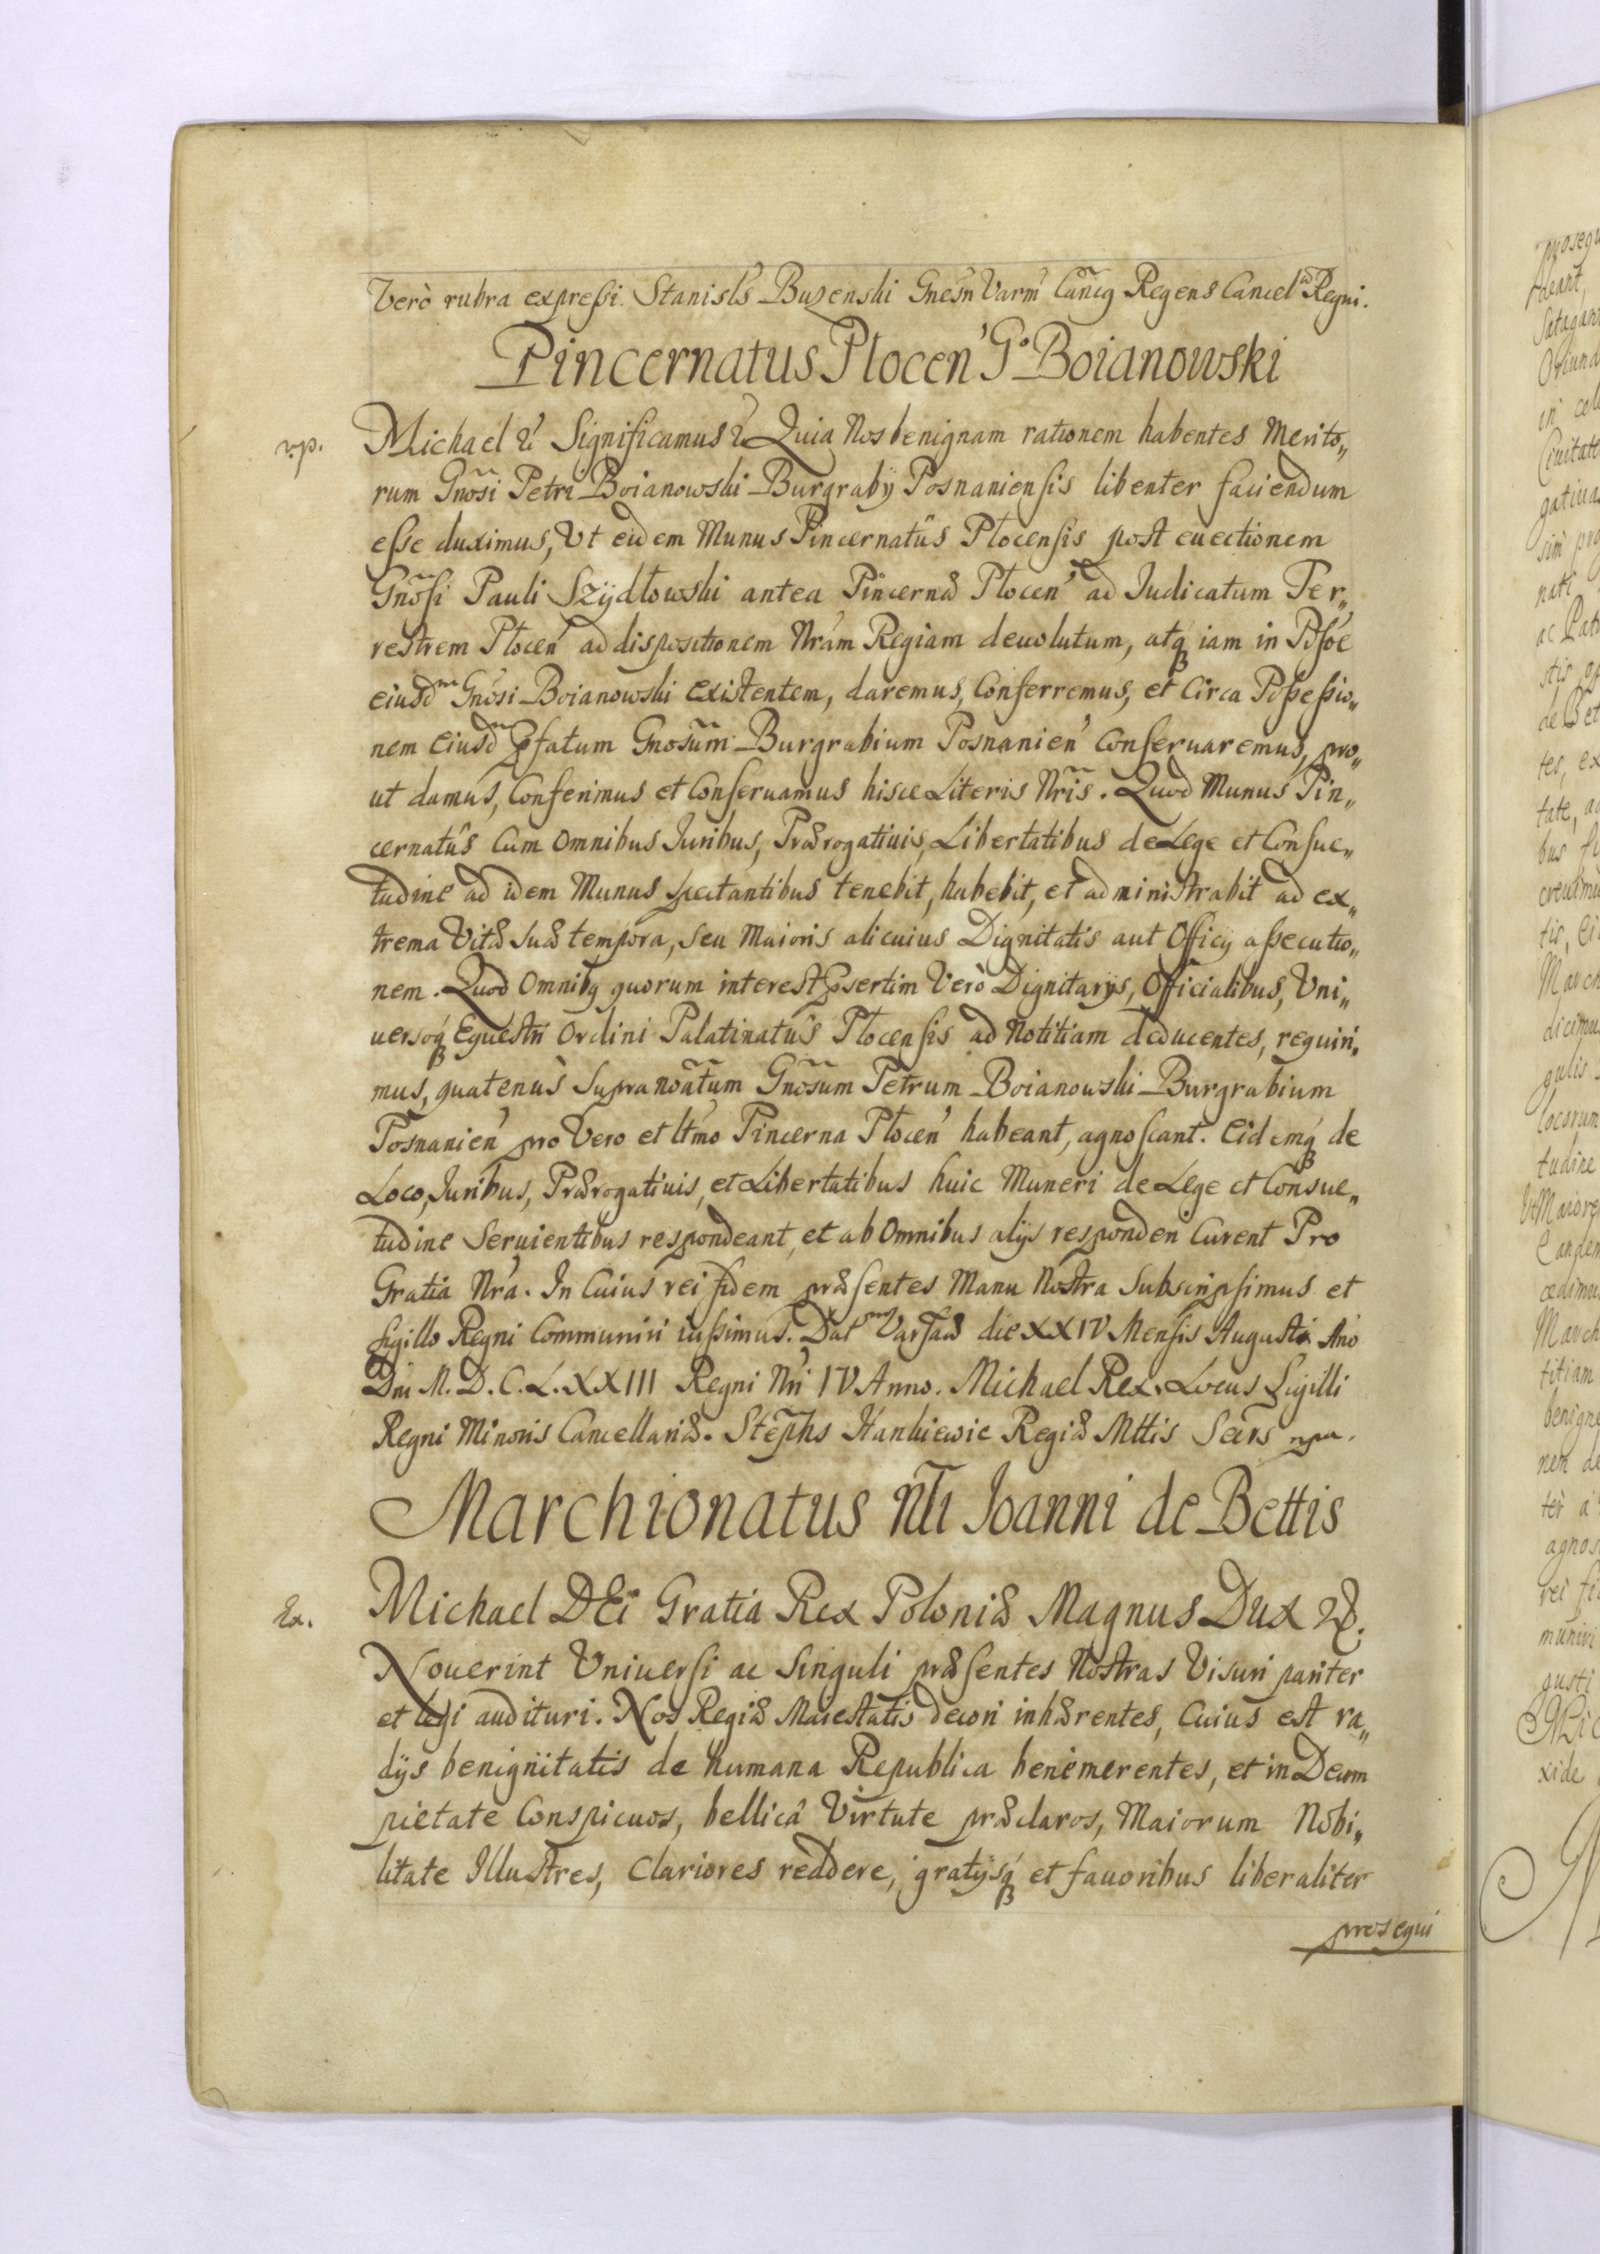 Verò rubra expressi. Stanisl's Buzenski Gnesn̄ Varm̄ Can̄cg Regens Cancelæ Regni.
Pincernatus Plocen' G° Boianowski
v.p.
Michael &c Significamus &c Quia Nos benignam rationem habentes Merito„
rum Gnōsi Petri Boianowski Burgraby Posnaniensis libenter faciendum
esse duximus, Vt eidem Munus Pincernatûs Plocensis post euectionem
Gnōsi Pauli Szÿdłowski antea Pincernæ Plocen' ad Iudicatum Ter„
restrem Plocen' ad dispositionem Nrām Regiam deuolutum, atq iam in Pōssōe
eiusdm Gnōsi Boianowski existentem, daremus, Conferremus, et Circa Possessio„
nem eiusdm pfatum Gnosum̄ Burgrabium Posnanien' Conseruaremus, pro„
ut damus, Conferimus et Conseruamus hisce Literis Nrīs. Quod Munus Pin„
cernatûs Cum omnibus Iuribus, Prærogatiuis, Libertatibus de Lege et Consue„
tudine ad idem Munus spectantibus tenebit, habebit, et administrabit ad ex„
trema Vitæ suæ tempora, seu Maioris alicuius Dignitatis aut Officy assecutio„
nem. Quod Omnibq quorum interest psertim Verò Dignitarijs, Officialibus, Vni„
uersoq Equestri Ordini Palatinatûs Plocensis ad Notitiam deducentes, requiri„
mus, quatenùs supranoātum Gnōsum Petrum Boianowski Burgrabium
Posnanien' pro Vero et ltmo Pincerna Plocen' habeant, agnoscant. Eidemq de
Loco, Iuribus, Prærogatiuis, et Libertatibus huic Muneri de Lege et Consue„
tudine Seruientibus respondeant, et ab Omnibus alijs responderi Curent Pro
Gratia Nrā. In Cuius rei fidem præsentes Manu Nostra subscripsimus et
sigillo Regni Communiri iussimus. Dat Varsaæ die XXIV Mensis Augusti Ano
Dni M. D. C. L. XXIII Regni Nri IV Anno. Michael Rex. Locus Sigilli
Regni Minoris Cancellariæ. Stephs Hankiewic Regiæ Mttis Secrs mpa.
Marchionatus Nli Ioanni de Bettis
Ex.
Michael DEi Gratia Rex Poloniæ Magnus Dux &c.
Nouerint Vniuersi ac Singuli præsentes Nostras Visuri pariter
et legi audituri. Nos Regiæ Maiestatis decori inhærentes, Cuius est ra„
dijs benignitatis de humana Republica benèmerentes, et in Deum
pietate Conspicuos, bellicâ Virtute præclaros, Maiorum Nobi„
litate Illustres, Clariores reddere, gratijsq et fauoribus liberaliter
prosequi